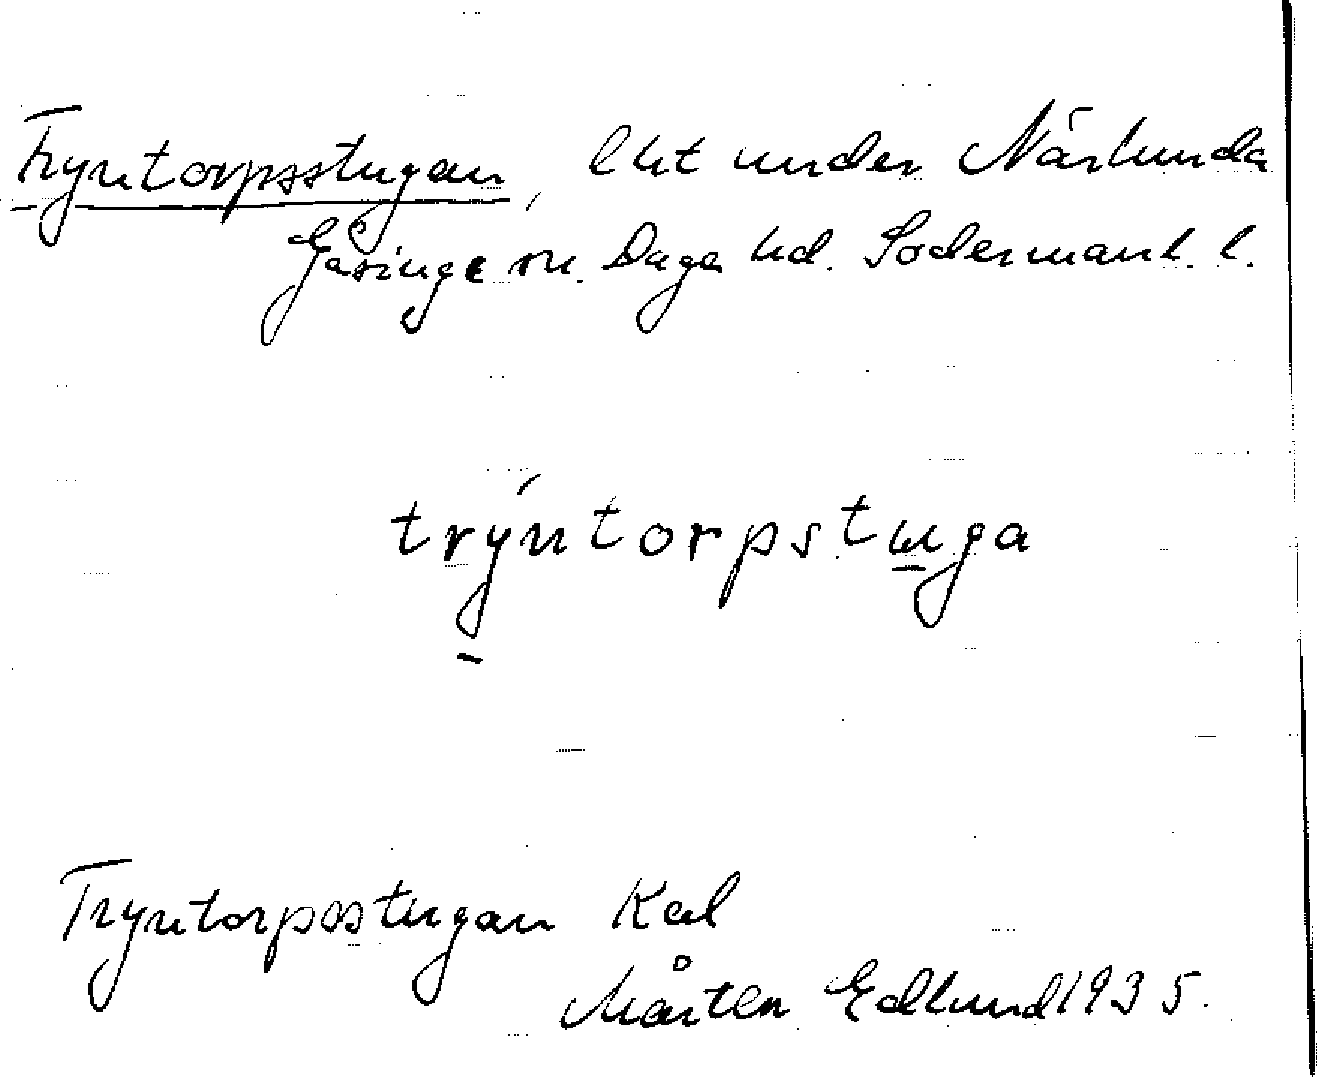 Tryntorpsstugan, lht under Närlunda
Gåsinge sn. Daga hd. Södermanl. l.
trýntorpstuga
Tryntorpsstugan Kal
Mårten Edlund 1935.